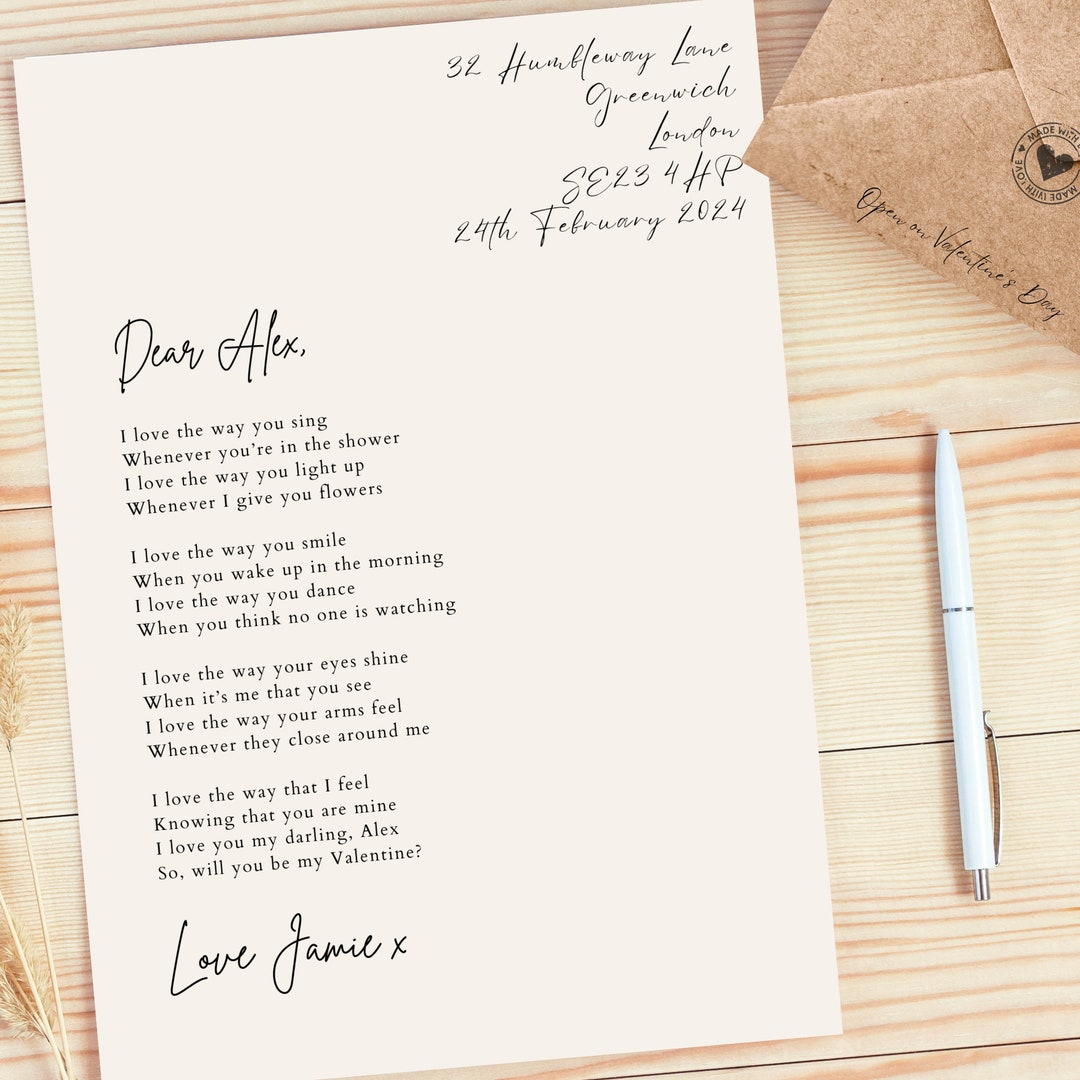 32 Humbleway Lane
Greenwich
London
SE23 4HP
24th February 2024
MADE WITH
MADE WITH LOVE
Open on Valentine's Day
Dear Alex,
I love the way you sing
Whenever you're in the shower
I love the way you light up
Whenever I give you flowers
I love the way you smile
When you wake up in the morning
I love the way you dance
When you think no one is watching
I love the way your eyes shine
When it's me that you see
I love the way your arms feel
Whenever they close around me
I love the way that I feel
Knowing that you are mine
I love you my darling, Alex
So, will you be my Valentine?
Love Jamie x